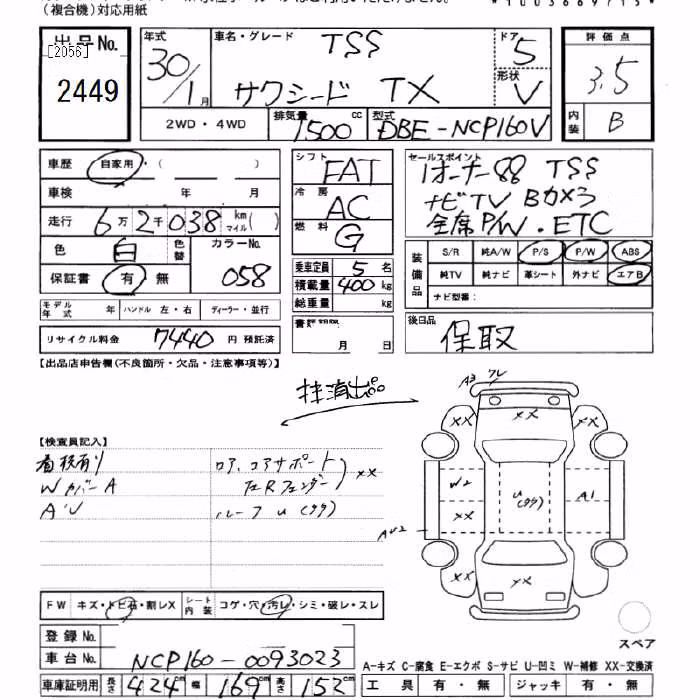 (複合機)対応用紙
*1003669715*
出品No.
[2056]
2449
年式
30/1月
車名・グレード
TSS
サクシード TX
ドア
5
形状
V
評価点
3.5
内装
B
2WD・4WD
排気量
1500cc
型式
DBE-NCP160V
車歴
自家用・( )
車検
年 月
走行
6万2千038 km マイル( )
色
白
色替
カラーNo.
058
保証書
有 無
モデル年式
年
ハンドル 左・右
ディーラー・並行
リサイクル料金
7440円 預託済
シフト
FAT
冷房
AC
燃料
G
乗車定員 5名
積載量 400kg
総重量 kg
書類期限
月 日
セールスポイント
1オーナー88 TSS
ナビTV Bカメラ
全席P/W・ETC
装備品
S/R 純A/W P/S P/W ABS
純TV 純ナビ 革シート 外ナビ エアB
ナビ型番:
後日品
保取
【出品店申告欄(不良箇所・欠品・注意事項等)】
抹消出品
【検査員記入】
看板有り
WカバーA
A・U
コア、コアサポート
左Rフェンダー
××
ルーフ U(タタ)
A3
フレ
××
××
××
W2
××
U(タタ)
A1
AU2
××
××
FW
キズ・トビ石・割レX
シート内装
コゲ・穴・汚レ・シミ・破レ・スレ
登録No.
車台No.
NCP160-0093023
車庫証明用
長さ 424cm
幅 169cm
高さ 152cm
スペア
A-キズ C-腐食 E-エクボ S-サビ U-凹ミ W-補修 XX-交換済
工具 有・無
ジャッキ 有・無